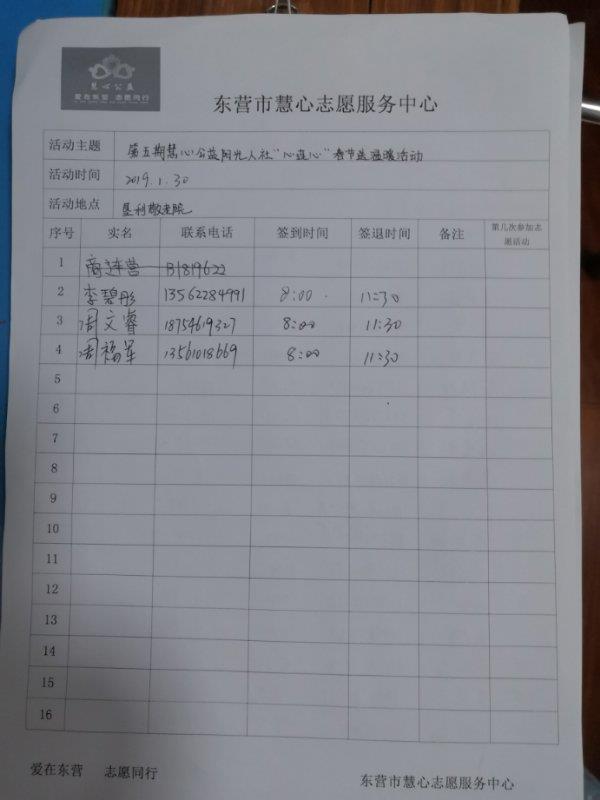 慧心公益
爱在东营 志愿同行
东营市慧心志愿服务中心
活动主题 第五期慧心公益阳光人社“心连心”春节送温暖活动
活动时间 2019.1.30
活动地点 垦利敬老院
序号 实名 联系电话 签到时间 签退时间 备注 第几次参加志愿活动
1 商连营 131819622
2 李碧彤 13562284991 8:00 11:30
3 周文睿 18754619327 8:00 11:30
4 周福军 13561018669 8:00 11:30
5
6
7
8
9
10
11
12
13
14
15
16
爱在东营 志愿同行 东营市慧心志愿服务中心